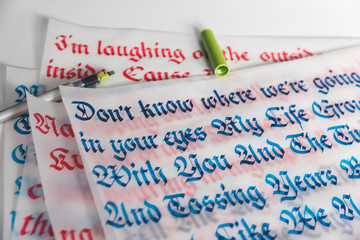 I'm laughing on the outside
inside Cause
Na
Don't know where we're going
in your eyes My Life
With You And The
And Tossing Years
Like We
thing